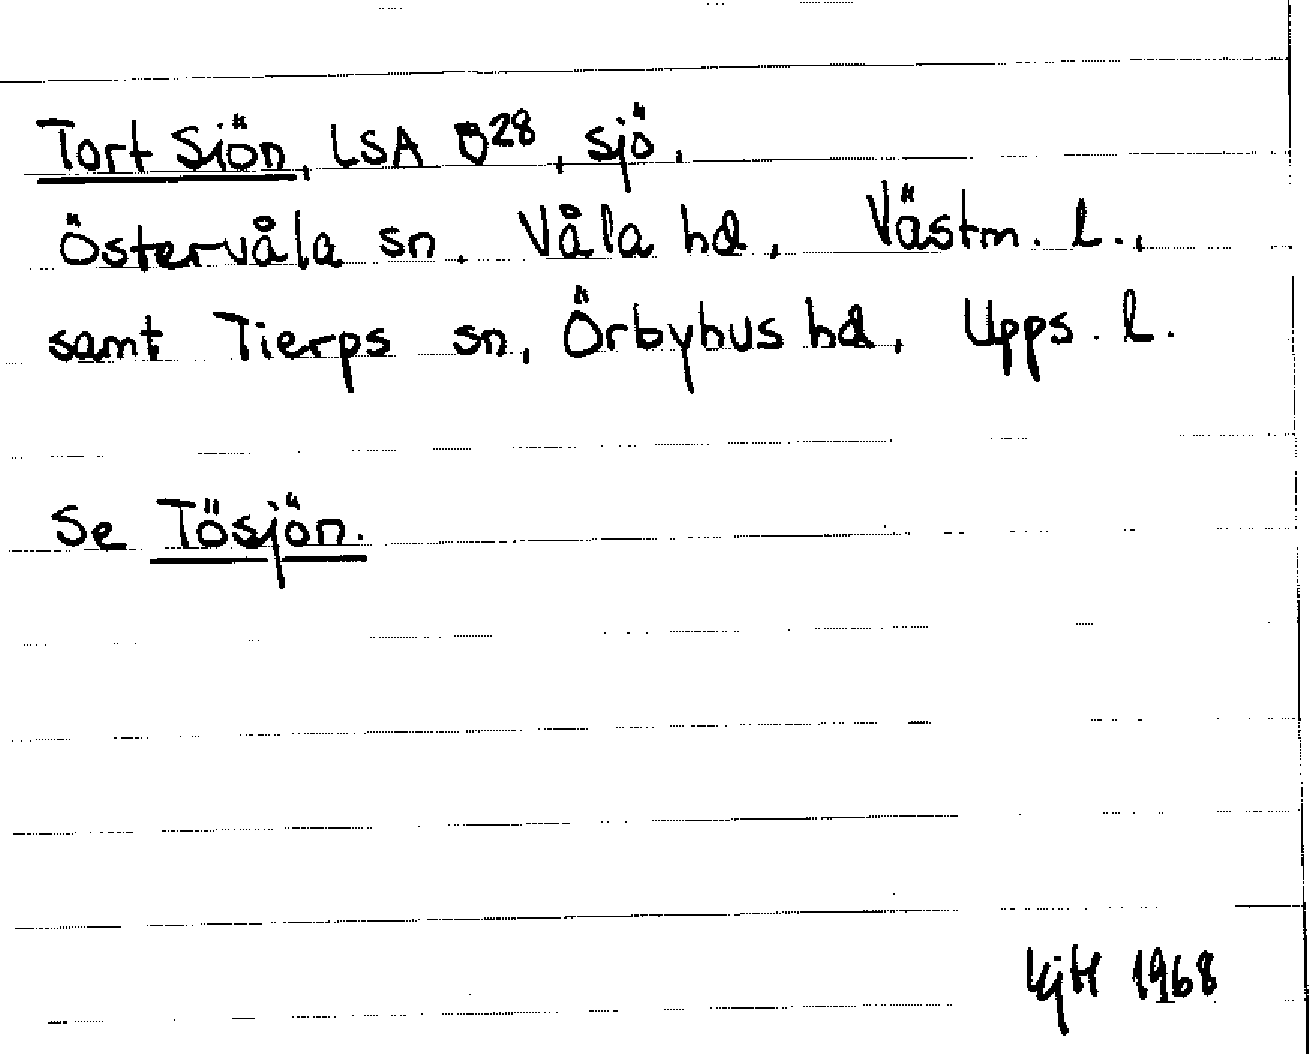 Tort Sjön, LSA Ö28, sjö,
Östervåla sn, Våla hd, Västm. l.,
samt Tierps sn, Örbyhus hd, Upps. l.
Se Tösjön.
KjH 1968